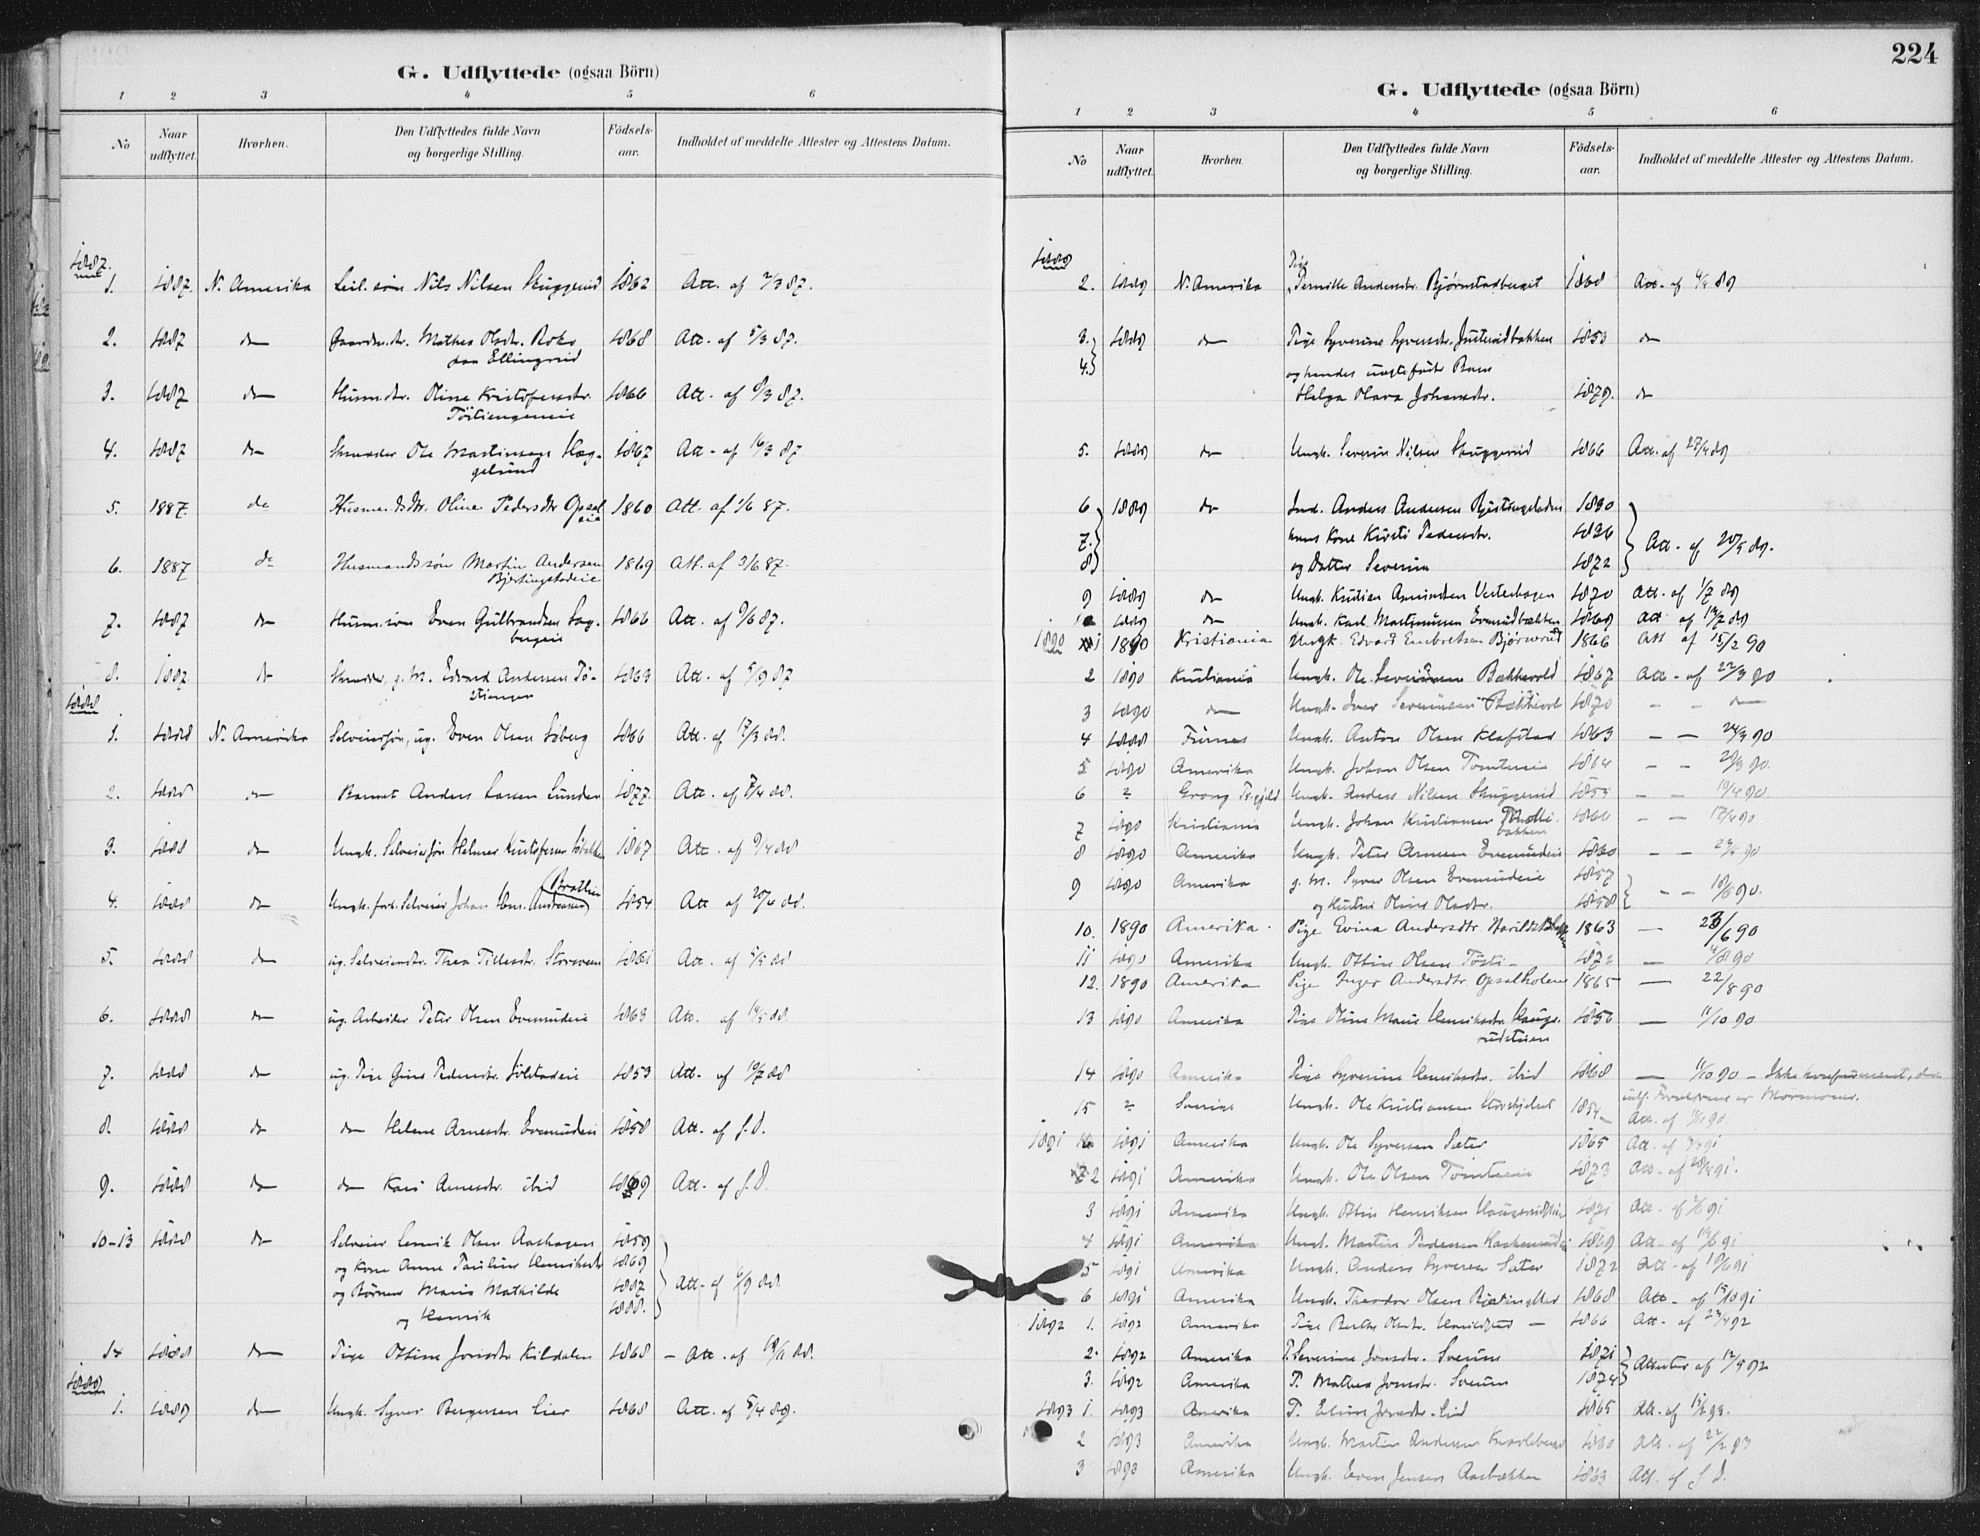 224
G. Udflyttede (ogsaa Börn)
1 2 3 4 5 6
No Naar udflyttet. Hvorhen. Den Udflyttedes fulde Navn og borgerlige Stilling. Födsels-aar. Indholdet af meddelte Attester og Attestens Datum.
1887.
1. 1887. N. Amerika Nils Nilsen Skuggerud 1862 Att. af 2/3 87.
2. 1887 do Mathea Olsdr. Roko 1868 Att. af 5/3 87.
paa Ellingsrud
3. 1887 do Husm.dtr. Oline Kristofersdtr. 1866 Att. af 8/3 87.
4. 1887 do Skrædder Ole Martinsen Hag- 1867 Att. af 16/3 87
gelund
5. 1887. do Husmdsdtr. Oline Pedersdtr Opsal 1860 Att. af 1/6 87.
eie
6. 1887 do Husmandssön Martin Andersen 1869 Att. af 3/6 87.
7. 1887 do Husm.sön Even Gulbrandsen 1866 Att. af 9/6 87.
8. 1887 do Edvard Andersen Tö- 1863 Att. af 5/9 87
1888
1. 1888 N. Amerika Selveiersön, ug. Even Olsen Söberg 1866 Att. af 17/3 88.
2. 1888 do Barnet Anders Larsen Lunder 1877. Att. af 7/4 88.
3. 1888 do Ungk. Selveiersön Helmer Kristofersen 1867 Att. af 9/4 88
4. 1888 do Ungk. forh. Selveier Johan 1854 Att. af 20/4 88.
5. 1888 do ug. Selveierdtr. Thea 1861 Att. af 5/5 88
6. 1888 do ug. Arbeider Peter Olsen Evenrudeie 1863 Att. af 14/5 88
7. 1888 do ug. Pige Gina Pedersdtr. 1853 Att. af 10/7 88
8. 1888 do do Helene Arnesdtr. Evenrudeie 1858 Att. af S. D.
9. 1888 do do Kari Arnesdtr. ibid 1869 Att. af S. D.
10-13 1888 do Selveier Lenvik Olsen Aashagen 1859
og Kone Anne Pauline Henriksdtr 1869
og Börnene Marie Mathilde 1887 Att. af 6/9 88.
og Henrik 1888.
14 1888 do Pige Ottine Jonsdtr. Kildalen 1868 – Att. af 19/9 88.
1889
1. 1889 do Ungk. Syver Bergersen Lier 1868 Att. af 5/4 89.
G. Udflyttede (ogsaa Börn)
1 2 3 4 5 6
No Naar udflyttet. Hvorhen. Den Udflyttedes fulde Navn og borgerlige Stilling. Födsels-aar. Indholdet af meddelte Attester og Attestens Datum.
1889
Pige
2. 1889 N. Amerika Pernille Andersdtr. Bjørnstadberget 1868 Att. af 4/4 89
3. 1889 do Pige Syverine Syversdtr. Justerudbakken 1853 do
4. og hendes uægtefødte Barn
Helga Olava Johansdtr. 1879. do
5. 1889 do Ungk. Severin Nilsen Skuggerud 1866 Att. af 27/4 89
6 1889 do Ind. Anders Andersen 1830
7. hans Kone Kirsti Pedersdtr. 1836 Att. af 20/5 89.
8 og Datter Severine 1872
9 1889 do Ungk. Kristian Amundsen Vesterhagen 1870 Att. af 1/7 89
10 1889 do Ungk. Karl Martinusen Evenrudbakken 1869 Att. af 19/7 89
1890 1 1890 Kristiania Ungk. Edvard Embretsen Bjørnerud 1866 Att af 15/2 90
2 1890 Kristiania Ungk. Ole Severinsen Bækkevold 1867 Att. af 22/3 90
3 1890 do Ungk. Iver Severinsen Bækkevold 1870 – – do
4 1890 Furnes Ungk. Anton Olsen Klafstad 1863 – – 24/3 90
5 1890 Amerika Ungk. Johan Olsen Tomteeie 1864 – – 29/3 90.
6 " Ungk. Anders Nilsen Skuggerud – – 10/4 90.
7 1890 Kristiania Ungk. Johan Kristiansen 1866 – – 12/4 90.
8 1890 Amerika Ungk. Peter Arnesen Evenrudeie 1860 – – 23/5 90
9 1890 Amerika g. M. Syver Olsen Evenrudeie 1857
og Hustru Oline Olsdtr. 1858 – – 18/5 90.
10. 1890 Amerika. Pige Evina Andersdtr. 1863 – 23/6 90
11 1890 Amerika Ungk. Ottin Olsen Tösti – 1872 – 4/8 90
12. 1890 Amerika Pige Inger Andersdtr. Opsalholen 1865 – 22/8 90
13 1890 Amerika Pige Oline Marie Henriksdtr. Haugs- 1850 – 11/10 90
rudstuen
14 1890 Amerika Pige Syverine Henriksdtr. ibid 1868 – 11/10 90 – Ikke konfirmeret, da
Forældrene er Mormoner.
15 " Sverige Ungk. Ole Kristiansen 1854 Att. af
1891 1 1891 Amerika Ungk. Ole Syversen Sæter 1865 Att. af
2 1891 Amerika Ungk. Ole Olsen Tomteeie 1873 Att. af 28/4 91.
3 1891 Amerika Ungk. Ottin Henriksen Haugsrudstuen 1871 Att. af
4 1891 Amerika Ungk. Martin Pedersen 1869 Att. af 19/6 91
5 1891 Amerika Ungk. Anders Syversen Sæter 1872 Att. af 19/6 91
6 1891 Amerika Ungk. Theodor Olsen 1868 Att. af 13/10 91
1892 1. 1892 Amerika Pige Berthe Olsdtr. – 1866 Att. af 23/4 92
2. 1892 Amerika P. Severine Jonsdtr. Sveum 1871
Attester af 12/5 92
3. 1892 Amerika P. Mathea Jonsdtr. Sveum 1874
1893 1. 1893 Amerika P. Eline Jonsdtr. 1865 Att. af
2 1893 Amerika Ungk. Martin Andersen 1860 Att. af 22/2 93
3 1893 Amerika Ungk. Even Jensen Aasbækken 1863 Att. af S. D.